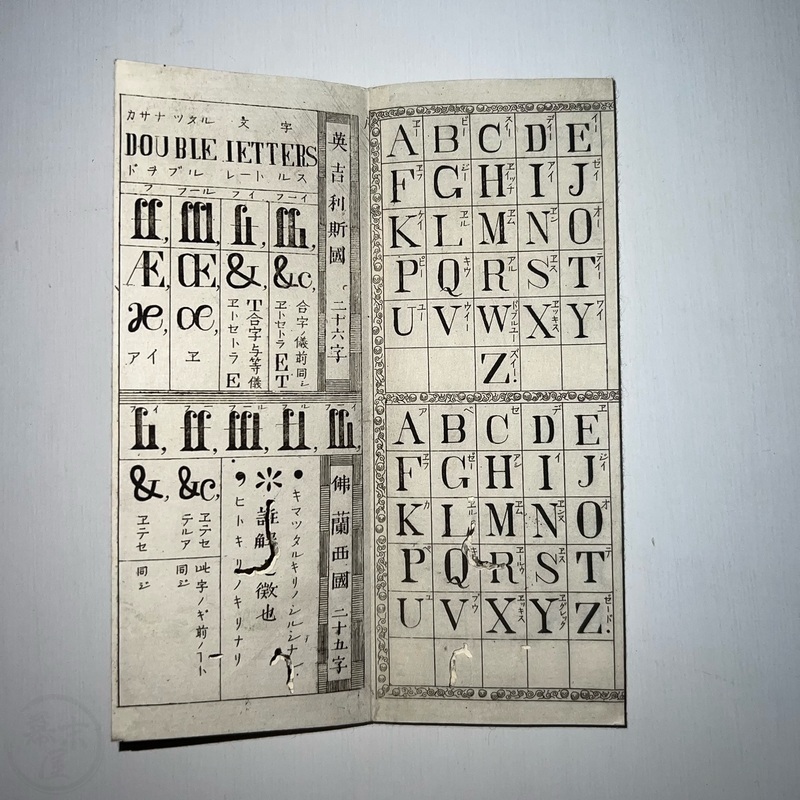 カサナツタル 文字
DOUBLE lETTERS
ドヲブル レートルス
フ フール フイ フーイ
ff, ffl, fi, ffi,
Æ, Œ, &, &c,
æ, œ,
アイ ヱ
ヱトセトラ E
T合字与等儀
ヱトセトラ ET
合字ノ儀前同シ
英吉利斯國 二十六字
A B C D E
ヱー ビー スイー デイー イー
F G H I J
ヱフ ジー ヱイッチ アイ ゼイ
K L M N O
ケイ ヱル ヱム ヱン オー
P Q R S T
ピー キウ アル ヱス テイー
U V W X Y
ユー ウイー ドブルユー ヱッキス ワイ
Z.
ズイー
fi, ff, ffl, fl, ffi,
&, &c,
ヱテセ
同シ
ヱテセテルア
同シ
此字ノギ前ノフト
,ヒトキリノキリナリ
* 註解 徴也
.キマツタルキリノシルシナリ
佛蘭西國 二十五字
A B C D E
ア ベ セ デ ヱ
F G H I J
ヱフ ゼー アシ イ ジイ
K L M N O
カ ヱル ヱム ヱンヌ オ
P Q R S T
ペ ヱールウ ヱス テ
U V X Y Z.
ユ ブウ ヱッキス ヱグレック ゼード